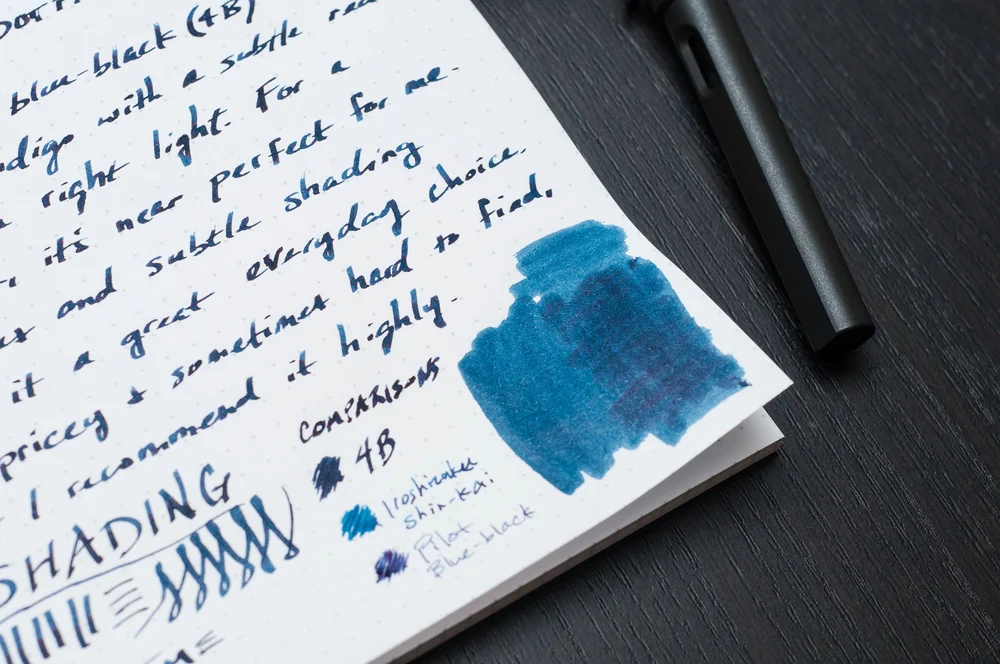 blue-black (4B)
with a subtle
right light. For a
it's near perfect for me.
and subtle shading
it a great everyday choice.
pricey & sometimes hard to find,
I recommend it highly.
COMPARISONS
4B
Iroshizuku
Shin-kai
Pilot
Blue-black
SHADING